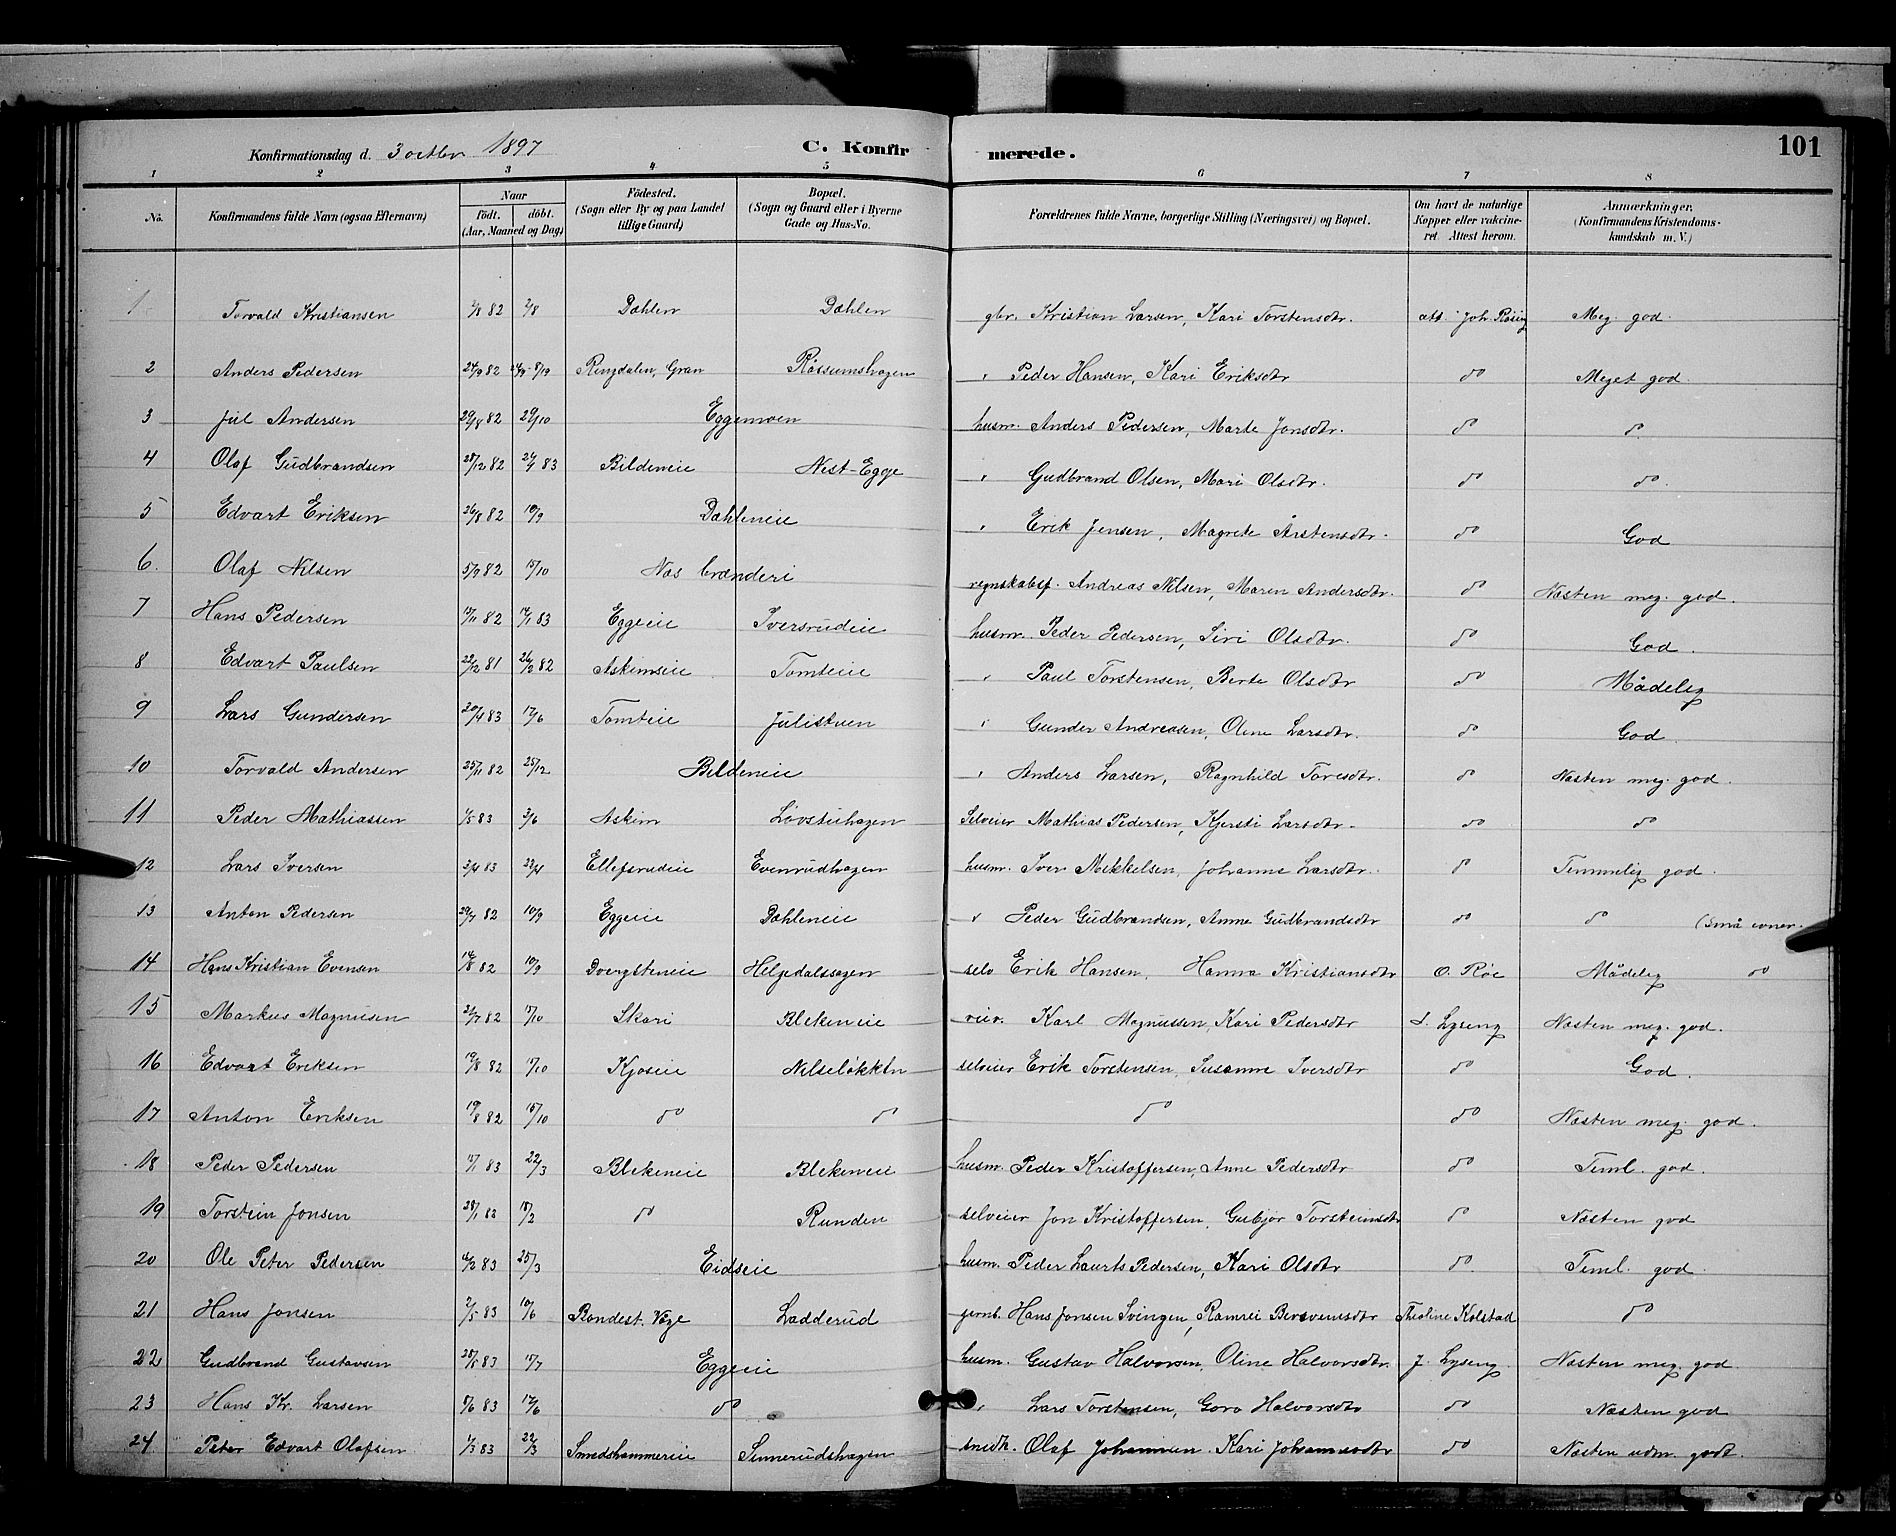 Konfirmationsdag d. 3 octbr 1897 C. Konfirmerede. 101
1 2 3 4 5 6 7 8
No. Konfirmandens fulde Navn (ogsaa Efternavn) Naar födt. döbt. (Aar, Maaned og Dag) Födested. (Sogn eller By og paa Landet tillige Gaard) Bopæl. (Sogn og Gaard eller i Byerne Gade og Hus-No. Forældrenes fulde Navne, borgerlige Stilling (Næringsvei) og Bopæl. Om havt de naturlige Kopper eller vakcineret. Attest herom. Anmærkninger. (Konfirmandens Kristendomskundskab m. V.)
1 Torvald Kristiansen 82 2/8 Dæhlen Dæhlen gbr. Kristian Larsen, Kari Torstensdtr. att. Joh. Røsing Meg. god.
2 Anders Pedersen 24/9 82 Ringdalen, Gran Røssumshagen " Peder Hansen, Kari Eriksdtr do Meget god.
3 Jul Andersen 29/8 82 29/10 Eggemoen husm. Anders Pedersen, Marte Jonsdtr. do do
4 Olaf Gudbrandsen 28/12 82 83 Bildeneie Nest-Egge " Gudbrand Olsen, Mari Olsdtr. do do
5 Edvart Eriksen 26/8 82 10/9 Dæhleneie " Erik Jensen, Magrete Årstensdtr. do God
6. Olaf Nilsen 5/9 82 15/10 Næs brænderi regnskabsf. Andreas Nilsen, Maren Andersdtr. do Næsten meg. god.
7 Hans Pedersen 82 83 Eggeeie Iversrudeie husm. Peder Pedersen, Siri Olsdtr. do God.
8 Edvart Paulsen 22/12 81 26/2 82 Askimseie Tomteeie " Paul Torstensen, Berte Olsdtr do Mådelig
9 Lars Gundersen 20/4 83 17/6 Tomteie Julistuen " Gunder Andreasen, Oline Larsdtr. do God
10 Torvald Andersen 25/11 82 25/12 Bildeneie " Anders Larsen, Ragnhild Toresdtr. do Næsten meg. god.
11 Peder Mathiassen 1/5 83 3/6 Askim Løvstuhagen Selveier Mathias Pedersen, Kjersti Larsdtr. do do
12 Lars Iversen 2/4 83 22/4 Ellefsrudeie Evenrudhagen husm. Iver Mikkelsen, Johanne Larsdtr. do Temmelig god.
13 Anton Pedersen 29/7 82 10/9 Eggeie Dæhleneie " Peder Gudbrandsen, Anne Gudbrandsdtr do do (Små evner.
14 Hans Kristian Evensen 14/8 82 10/9 Dvergsteneie Helgedalshagen selv Erik Hansen, Hanna Kristiansdtr O. Røe Mådelig do
15 Markus Magnusen 82 15/10 Skari Blekeneie Karl Magnussen, Kari Pedersdtr Lyseng Næsten meg. god.
16 Edvart Eriksen 19/8 82 15/10 Kjoseie Nilseløkken selveier Erik Torstensen, Susanne Iversdtr do God.
17 Anton Eriksen 19/8 82 15/10 do do do do Næsten meg. god.
18 Peder Pedersen 83 22/3 Blekeneie Blekeneie husm. Peder Kristoffersen, Anne Pedersdtr do Teml. god.
19 Torstein Jonsen 28/1 83 18/2 do Runden selveier Jon Kristoffersen, Gubjør Torsteinsdtr do Næsten god
20 Ole Peter Pedersen 83 25/3 Eidseie husm. Peder Laurts Pedersen, Kari Olsdtr do Teml. god
21 Hans Jonsen 2/5 83 10/6 Bondest. Væge Ladderud jernb. Hans Jonsen Svingen, Ramvei Bersvensdtr Theoline Kolstad do
22 Gudbrand Gustavsen 28/5 83 15/7 Eggeeie husm. Gustav Halvorsen, Oline Halvorsdtr. J. Lyseng. Næsten meg. god
23 Hans Kr. Larsen 83 17/6 do " Lars Torstensen, Goro Halvorsdtr do Næsten god
24. Peter Edvart Olafsen 1/3 83 22/3 Smedshammereie Sinnerudshagen snedk. Olaf Johannesen, Kari Johannesdtr do Næsten udm. godt.